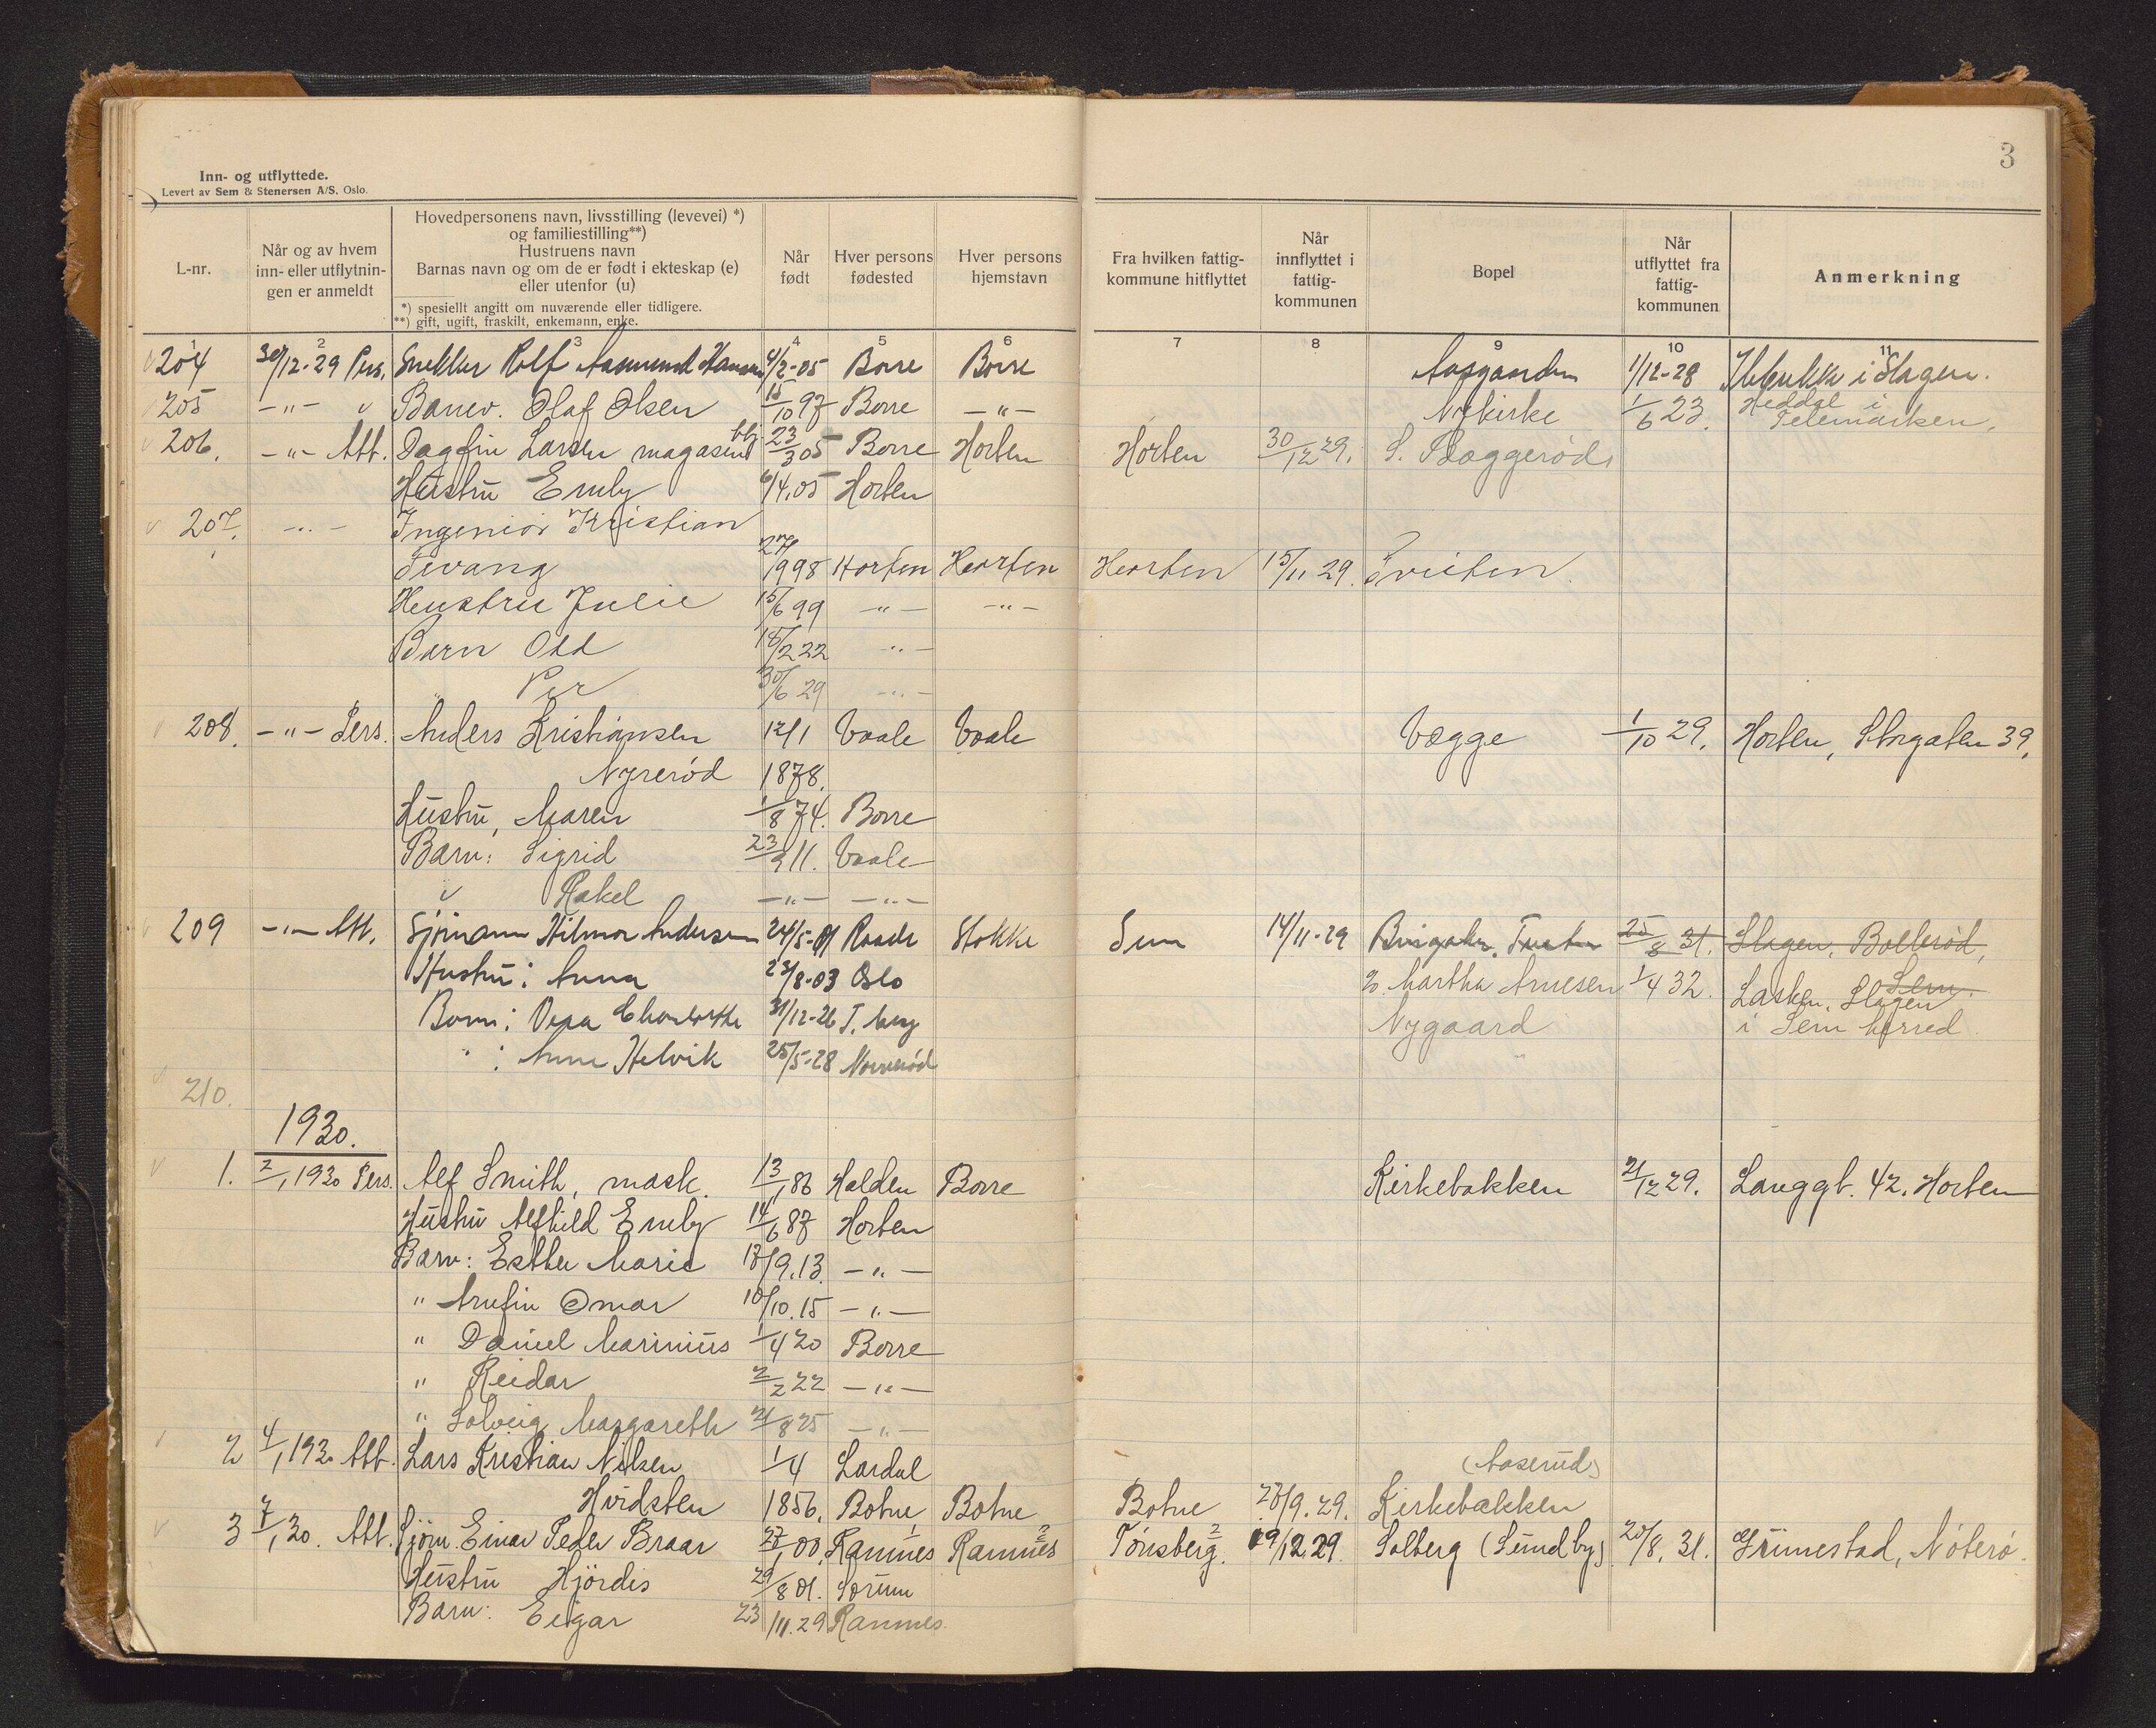 3
Inn- og utflyttede.
Levert av Sem & Stenersen A/S, Oslo.
L-nr.
Når og av hvem inn- eller utflytnin- gen er anmeldt
Hovedpersonens navn, livsstilling (levevei) *)
og familiestilling**)
Hustruens navn
Barnas navn og om de er født i ekteskap (e)
eller utenfor (u)
*) spesiellt angitt om nuværende eller tidligere.
**) gift, ugift, fraskilt, enkemann, enke.
Når født
Hver persons fødested
Hver persons hjemstavn
Fra hvilken fattig- kommune hitflyttet
Når innflyttet i fattig- kommunen
Bopel
Når utflyttet fra fattig- kommunen
Anmerkning
1 2 3 4 5 6 7 8 9 10 11
204 30/12-29 Pers. Snekker Rolf Aasmund Hansen 4/2-05 Borre Borre Aasgaarden 1/12-28 i Slagen.
205 -"- " Banev. Olaf Olsen 15/10 97 Borre -"- Nykirke 1/6 23. Heddal i Telemarken.
206. -"- Att. Dagfin Larsen magasinbtj 23/3 05 Borre Horten Horten 30/12 29. S. Bæggerød
Hustru Emly 6/4.05 Horten
207. -"- Ingeniør Kristian
Tivang 27/1 98 Horten Horten Horten 15/11 29.
Hustru Julie 15/6 99 -"- -"-
Barn Odd 18/2 22 -"-
" Per 30/6 29 -"-
208. -"- Pers. Anders Kristiansen 12/1 Vaale Vaale Vegge 1/10 29. Horten, Storgaten 39.
Nyrerød 1878.
Hustru, Maren 1/8 74. Borre
Barn: Sigrid 23/9 11. Vaale
" Rakel -"- -"-
209 -"- Att. Sjömann Hilmar Andersen 24/5-01 Raade Stokke Sem 14/11-29 25/8 31. Slagen, Bollerød, Sem.
Hustru: Anna 23/8-03 Oslo % Martha Arnesen 1/4 32. Lasken, Slagen
Barn: Vera Charlotte 31/12-26 T.berg Nygaard i Sem herred
" : Anne Helvik 25/5-28
210.
1930.
1. 2/1 1930 Pers. Alf Smith, mask. 13/1 86 Halden Borre Kirkebakken 21/12 29. Langgt. 42. Horten
Hustru Alfhild Emly 14/6 87 Horten
Barn: Esther Marie 17/9.13. -"-
" Arnfin Omar 10/10.15 -"-
" Daniel Marinius 1/4 20 Borre
" Reidar 2/2 22 -"-
" Solveig Margareth 21/8 25 -"-
2 4/1 1930 Att. Lars Kristian Nilsen 1/4 Lardal (Aaserud)
Hvidsten 1856. Botne Botne Botne 27/9.29. Kirkebakken
3 7/1 30. Att. Sjøm. Einar Peder Braar 27/1 00. Ramnes Ramnes? Tønsberg? 19/12.29. Solberg (Sundby) 20/8.31. Grimestad, Nøterø.
Hustru Hjördis 29/8 01. Sørum
Barn: Eigar 23/11.29 Ramnes.